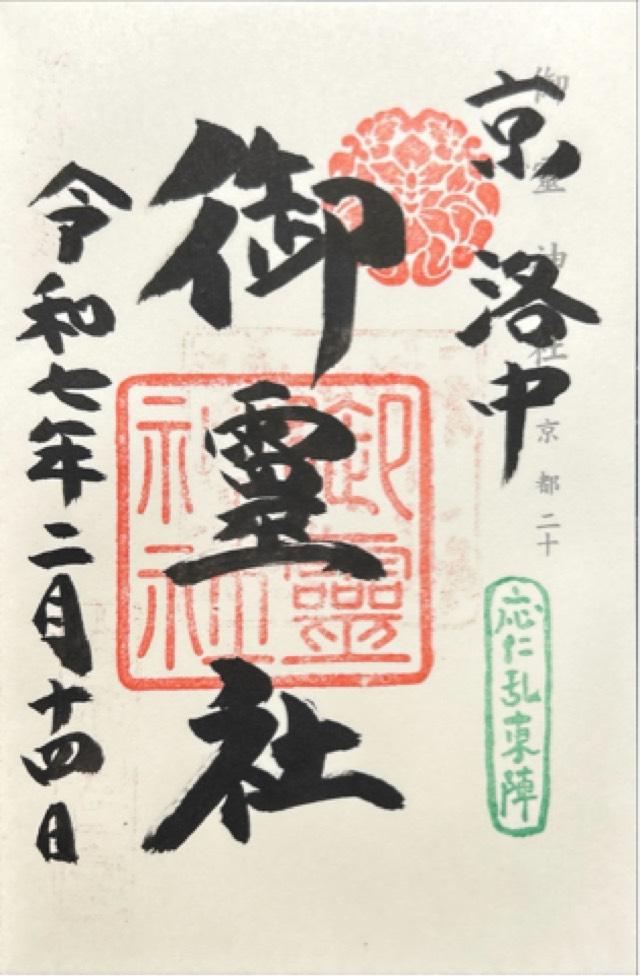 御霊神社 京都二十
京洛中
応仁乱東陣
御霊社
御靈神社
令和七年二月十四日